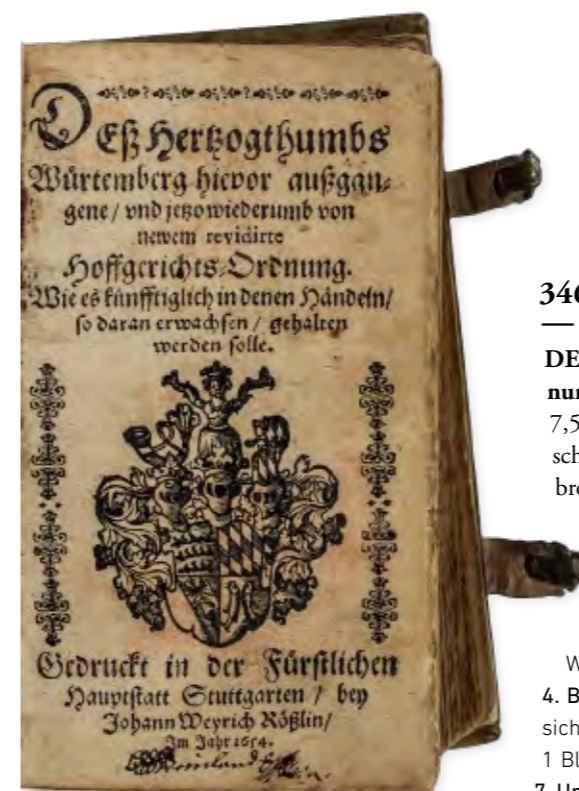 Deß Hertzogthumbs
Würtemberg hievor außgan-
gene / vnd jetzo wiederumb von
newem revidirte
Hoffgerichts-Ordnung.
Wie es künfftiglich in denen Händeln /
so daran erwachsen / gehalten
werden solle.
Gedruckt in der Fürstlichen
Hauptstatt Stuttgarten / bey
Johann Weyrich Rößlin /
Im Jahr 1654.
346
DE
nur
7,5
sch
bre
W
4. B
sich
1 Bl